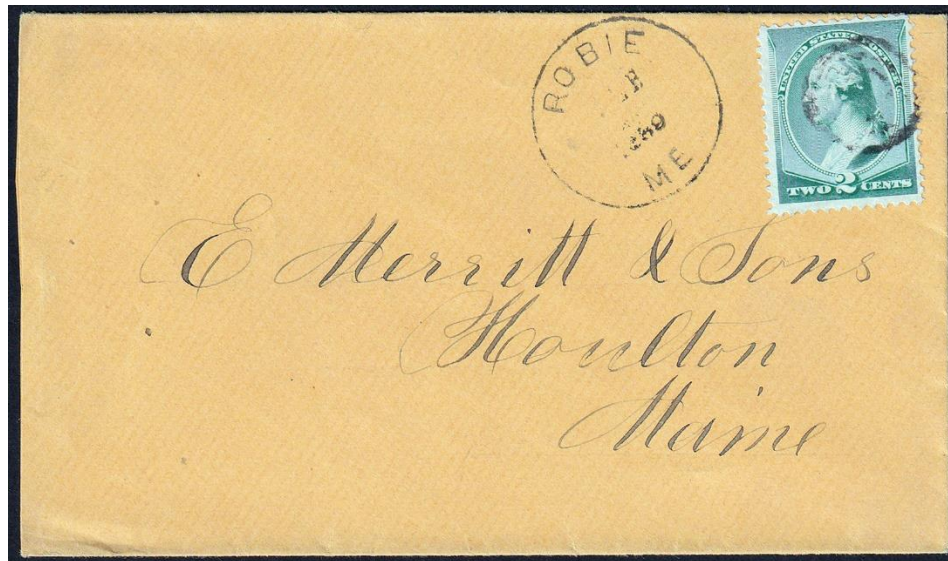 ROBIE
1889
ME
UNITED STATES POSTAGE
TWO 2 CENTS
E Merritt & Sons
Houlton
Maine